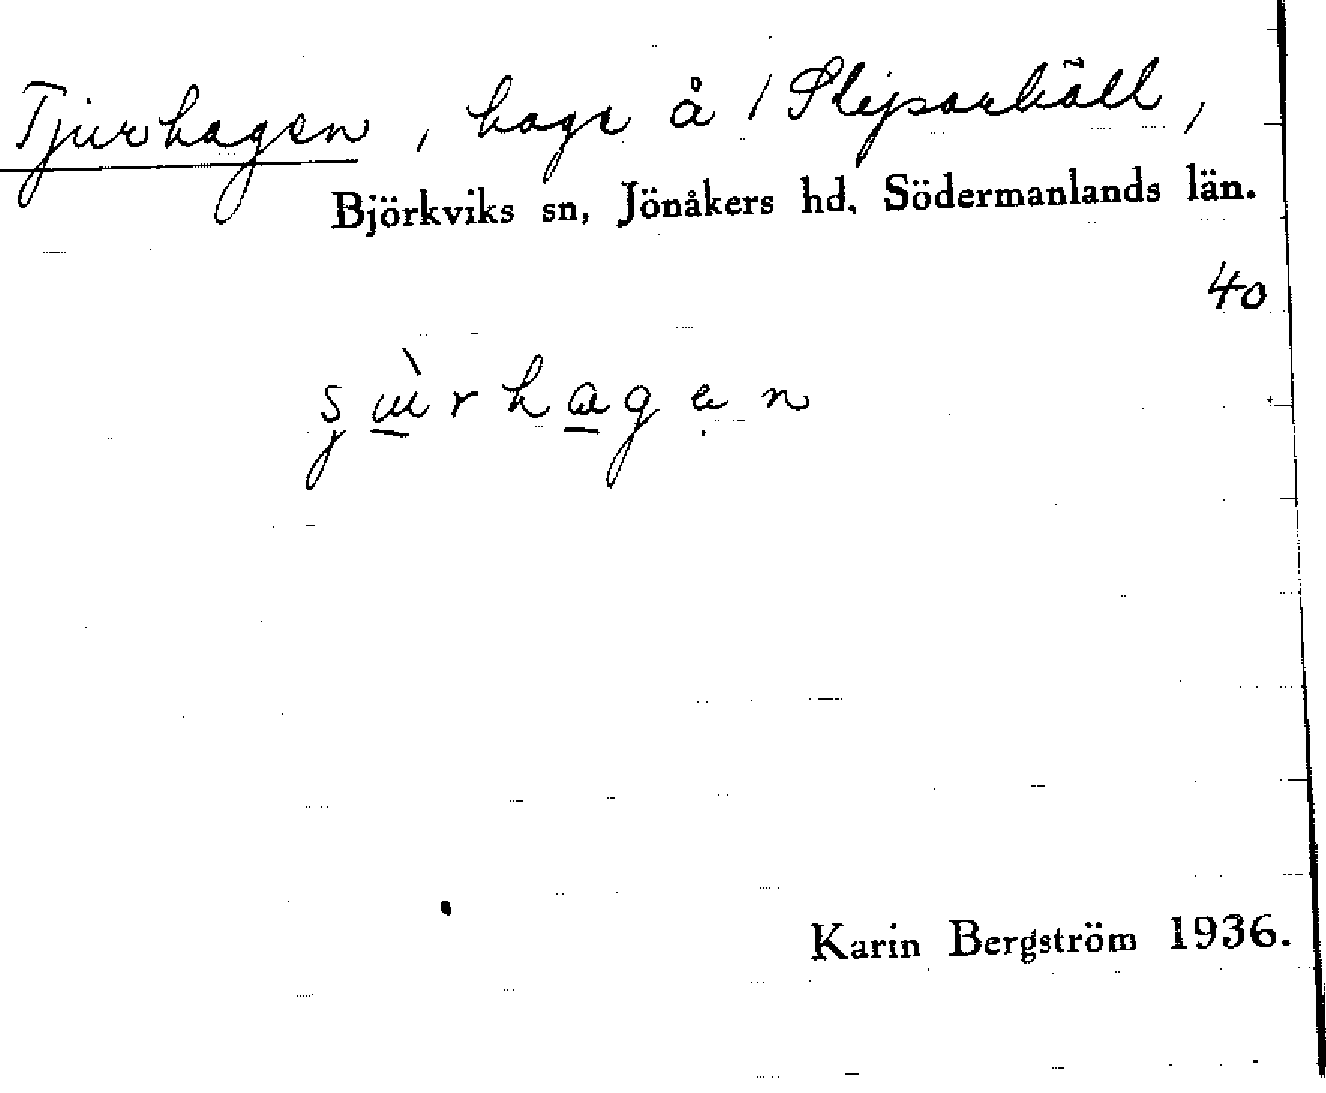 Tjurhagen, hage å / Slipsarhäll,
Björkviks sn, Jönåkers hd, Södermanlands län.
40
hagen
Karin Bergström 1936.